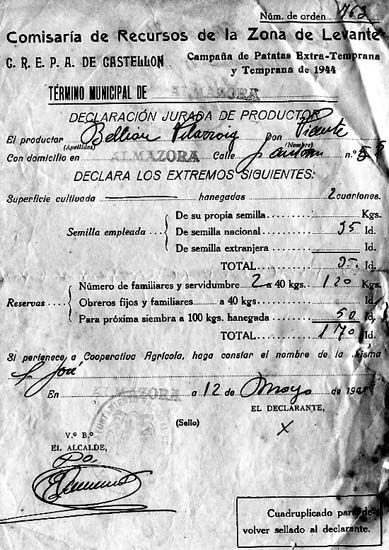 Núm. de orden 763
Comisaría de Recursos de la Zona de Levante
C. R. E. P. A. DE CASTELLON
Campaña de Patatas Extra-Temprana
y Temprana de 1944
TÉRMINO MUNICIPAL DE ALMAZORA
DECLARACIÓN JURADA DE PRODUCTOR
El productor Beltran Vilarroig Don Vicente
(Apellidos) (Nombre)
Con domicilio en ALMAZORA Calle nº.
DECLARA LOS EXTREMOS SIGUIENTES:
Superficie cultivada hanegadas 2 cuartones.
De su propia semilla Kgs.
Semilla empleada De semilla nacional 35 Id.
De semilla extranjera Id.
TOTAL 35 Id.
Número de familiares y servidumbre 2 a 40 kgs. 120 Kgs.
Reservas Obreros fijos y familiares a 40 kgs. Id.
Para próxima siembra a 100 kgs. hanegada 50 Id.
TOTAL 170 Id.
Si pertenece a Cooperativa Agrícola, haga constar el nombre de la misma
S. José
En ALMAZORA a 12 de Mayo de 194
(Sello) EL DECLARANTE,
X
V.º B.º
EL ALCALDE,
P.O.
Cuadruplicado para de-
volver sellado al declarante.